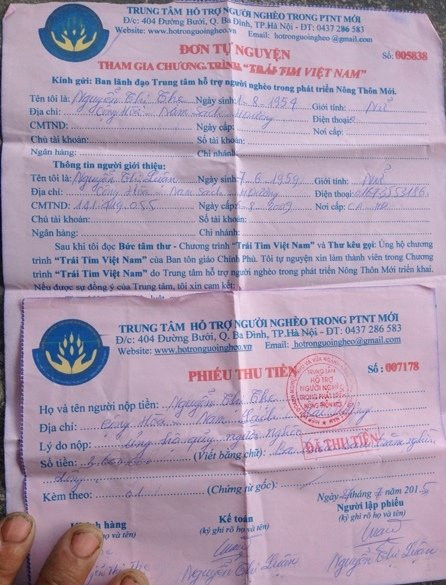 TRUNG TÂM HỖ TRỢ NGƯỜI NGHÈO TRONG PTNT MỚI
Đ/c: 404 Đường Bưởi, Q. Ba Đình, TP.Hà Nội - ĐT: 0437 286 583
Website: www.hotronguoingheo.vn Email: hotronguoingheo@gmail.com
ĐƠN TỰ NGUYỆN Số: 005838
THAM GIA CHƯƠNG TRÌNH "TRÁI TIM VIỆT NAM"
Kính gửi: Ban lãnh đạo Trung tâm hỗ trợ người nghèo trong phát triển Nông Thôn Mới.
Tên tôi là: Nguyễn Thị The Ngày sinh: 1-8-1954 Giới tính: Nữ
Địa chỉ: Cộng Hòa - Nam Sách Điện thoại:
CMTND: Ngày cấp: Nơi cấp:
Chủ tài khoản: Số tài khoản:
Ngân hàng: Chi nhánh:
Thông tin người giới thiệu:
Tên tôi là: Nguyễn Thị Luận Ngày sinh: 7-6-1959 Giới tính: Nữ
Địa chỉ: Cộng Hòa - Nam Sách Điện thoại:
CMTND: Ngày cấp: Nơi cấp:
Chủ tài khoản: Số tài khoản:
Ngân hàng: Chi nhánh:
Sau khi tôi đọc Bức tâm thư - Chương trình "Trái Tim Việt Nam" và Thư kêu gọi: Ủng hộ chương
trình "Trái Tim Việt Nam" của Ban tôn giáo Chính Phủ. Tôi tự nguyện xin làm thành viên trong chương
trình "Trái Tim Việt Nam" do Trung tâm hỗ trợ người nghèo trong phát triển Nông Thôn Mới triển khai.
Nếu được sự đồng ý của Trung tâm, tôi xin cam kết:
TRUNG TÂM HỖ TRỢ NGƯỜI NGHÈO TRONG PTNT MỚI
Đ/c: 404 Đường Bưởi, Q. Ba Đình, TP.Hà Nội - ĐT: 0437 286 583
Website: www.hotronguoingheo.vn Email: hotronguoingheo@gmail.com
PHIẾU THU TIỀN Số: 007178
TRUNG TÂM
HỖ TRỢ
NGƯỜI NGHÈO
TRONG PHÁT TRIỂN
NÔNG THÔN MỚI
Họ và tên người nộp tiền: Nguyễn Thị The
Địa chỉ: Cộng Hòa - Nam Sách
Lý do nộp: ủng hộ quỹ người nghèo
ĐÃ THU TIỀN
Số tiền: (Viết bằng chữ):
đồng
Kèm theo: 01 (Chứng từ gốc) Ngày 201
hàng Kế toán Người lập phiếu
và tên) (ký ghi rõ họ và tên) (ký ghi rõ họ và tên)
Nguyễn Thị Luận Nguyễn Thị Luận